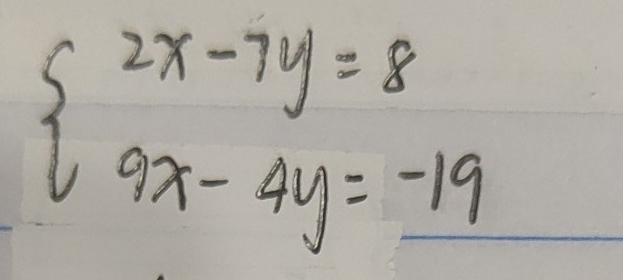 2x-7y=8
9x-4y=-19